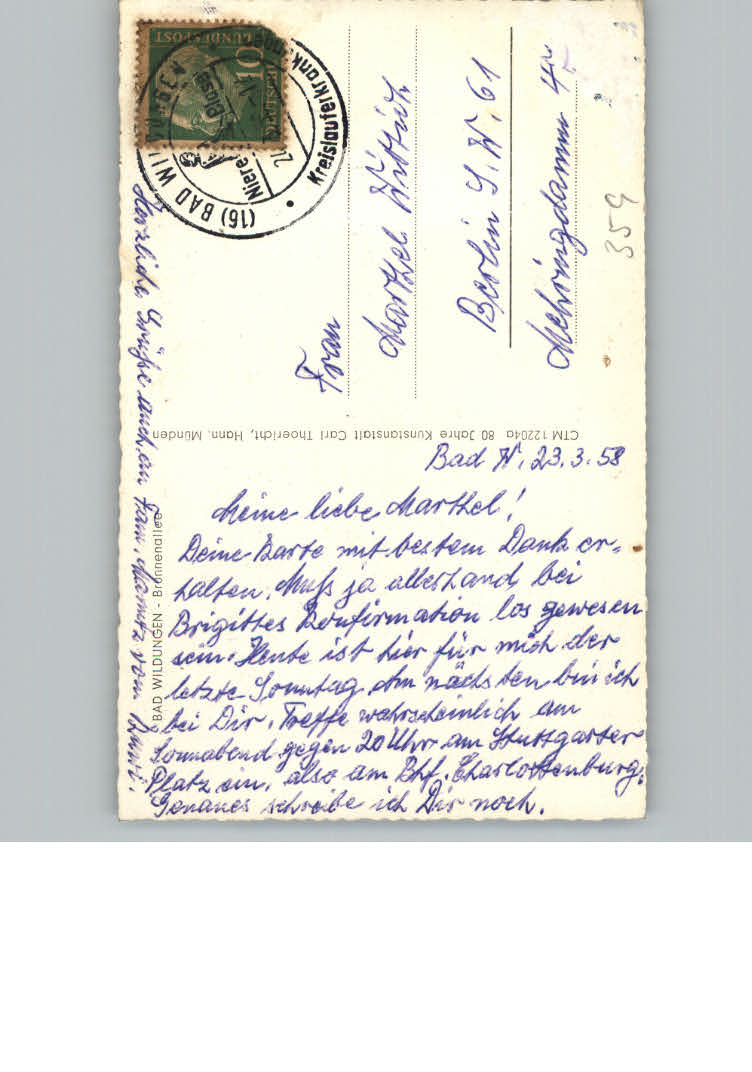 Bad W. 23.3.58
Meine liebe Marthel!
Deine Karte mit bestem Dank er-
halten. Muß ja allerhand bei
Brigittes Konfirmation los gewesen
sein. Heute ist hier für mich der
letzte Sonntag. Am nächsten bin ich
bei Dir. Treffe wahrscheinlich am
Sonnabend gegen 20 Uhr am Stuttgarter
Platz ein, also am Bhf. Charlottenburg.
Genaues schreibe ich Dir noch.
Herzliche Grüße auch an Fam. von
BAD WILDUNGEN - Brunnenallee
CTM 12204a 80 Jahre Kunstanstalt Carl Thoericht, Hann. Münden
Frau
Marthel Wittich
Berlin S.W. 61
Mehringdamm
359
BUNDESPOST
10
(16) BAD WILDUNGEN
Niere Blase
Kreislauferkrank
24